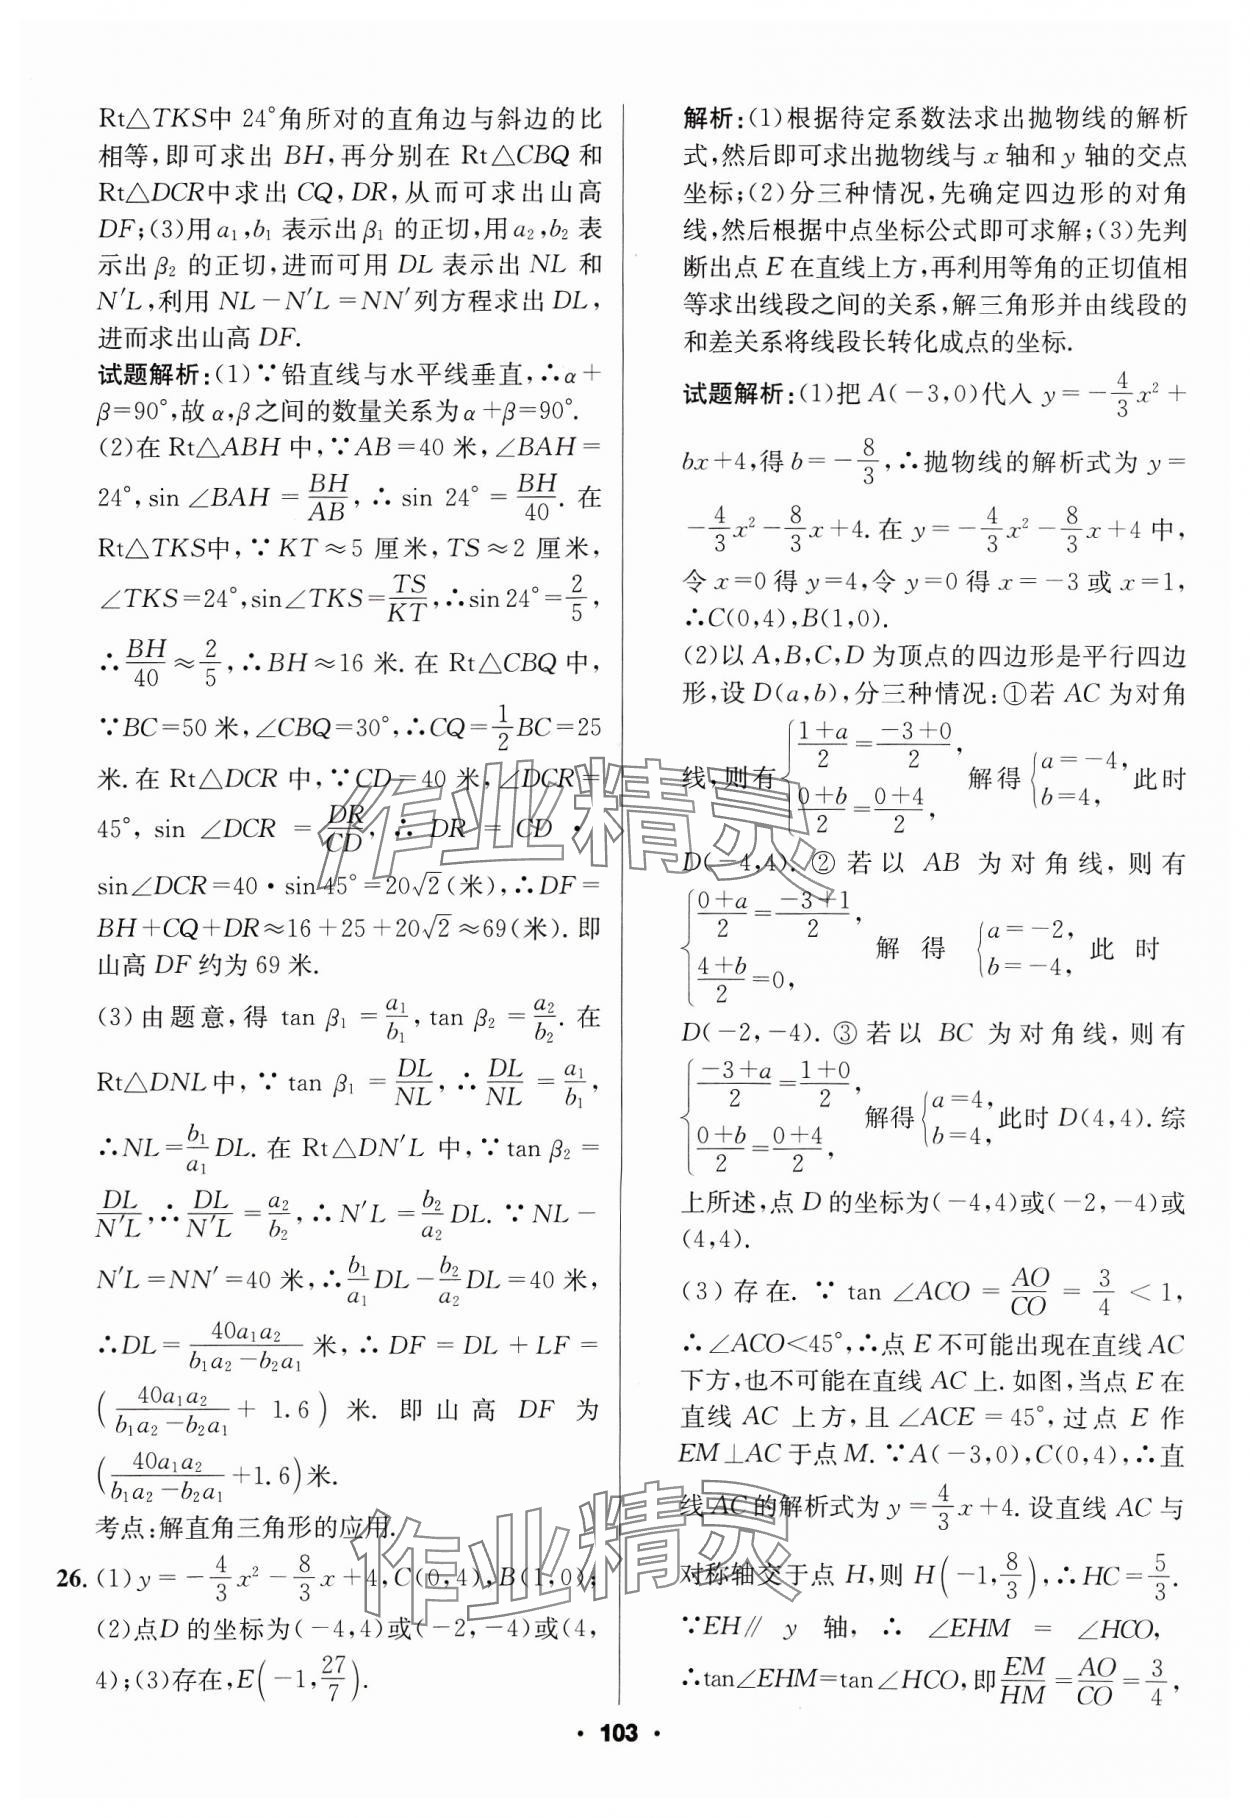 Rt△TKS中 24°角所对的直角边与斜边的比
相等,即可求出 BH,再分别在 Rt△CBQ 和
Rt△DCR中求出 CQ,DR,从而可求出山高
DF;(3)用 a₁,b₁ 表示出 β₁ 的正切,用 a₂,b₂ 表
示出 β₂ 的正切,进而可用 DL 表示出 NL 和
N′L,利用 NL－N′L＝NN′列方程求出 DL,
进而求出山高 DF.
试题解析:(1)∵铅直线与水平线垂直,∴α＋
β＝90°,故 α,β之间的数量关系为 α＋β＝90°.
(2)在 Rt△ABH 中,∵AB＝40 米,∠BAH＝
24°,sin ∠BAH ＝ BH/AB,∴ sin 24° ＝ BH/40. 在
Rt△TKS中,∵KT≈5 厘米,TS≈2 厘米,
∠TKS＝24°,sin∠TKS＝TS/KT,∴sin 24°＝2/5,
∴BH/40≈2/5,∴BH≈16 米.在 Rt△CBQ 中,
∵BC＝50 米,∠CBQ＝30°,∴CQ＝1/2BC＝25
米.在 Rt△DCR 中,∵CD＝40 米,∠DCR＝
45°, sin ∠DCR ＝ DR/CD, ∴ DR ＝ CD ·
sin∠DCR＝40·sin 45°＝20√2(米),∴DF＝
BH＋CQ＋DR≈16＋25＋20√2≈69(米).即
山高 DF 约为 69 米.
(3)由题意,得 tan β₁ ＝a₁/b₁,tan β₂ ＝a₂/b₂. 在
Rt△DNL中,∵tan β₁ ＝DL/NL,∴DL/NL＝a₁/b₁,
∴NL＝b₁/a₁DL.在 Rt△DN′L 中,∵tan β₂＝
DL/N′L,∴DL/N′L＝a₂/b₂,∴N′L＝b₂/a₂DL.∵NL－
N′L＝NN′＝40 米,∴b₁/a₁DL－b₂/a₂DL＝40 米,
∴DL＝40a₁a₂/(b₁a₂－b₂a₁)米,∴DF＝DL＋LF＝
(40a₁a₂/(b₁a₂－b₂a₁)＋1.6)米. 即山高 DF 为
(40a₁a₂/(b₁a₂－b₂a₁)＋1.6)米.
考点:解直角三角形的应用.
26. (1)y＝－4/3x²－8/3x＋4,C(0,4),B(1,0);
(2)点D 的坐标为(－4,4)或(－2,－4)或(4,
4);(3)存在,E(－1,27/7).
解析:(1)根据待定系数法求出抛物线的解析
式,然后即可求出抛物线与 x 轴和 y 轴的交点
坐标;(2)分三种情况,先确定四边形的对角
线,然后根据中点坐标公式即可求解;(3)先判
断出点 E 在直线上方,再利用等角的正切值相
等求出线段之间的关系,解三角形并由线段的
和差关系将线段长转化成点的坐标.
试题解析:(1)把 A(－3,0)代入 y＝－4/3x²＋
bx＋4,得 b＝－8/3,∴抛物线的解析式为 y＝
－4/3x²－8/3x＋4.在 y＝－4/3x²－8/3x＋4 中,
令 x＝0 得 y＝4,令 y＝0 得 x＝－3 或 x＝1,
∴C(0,4),B(1,0).
(2)以 A,B,C,D 为顶点的四边形是平行四边
形,设 D(a,b),分三种情况:①若 AC 为对角
线,则有{(1＋a)/2＝(－3＋0)/2, (0＋b)/2＝(0＋4)/2, 解得{a＝－4, b＝4, 此时
D(－4,4).②若以 AB 为对角线,则有
{(0＋a)/2＝(－3＋1)/2, (4＋b)/2＝0, 解得 {a＝－2, b＝－4, 此时
D(－2,－4).③若以 BC 为对角线,则有
{(－3＋a)/2＝(1＋0)/2, (0＋b)/2＝(0＋4)/2, 解得{a＝4, b＝4, 此时 D(4,4).综
上所述,点 D 的坐标为(－4,4)或(－2,－4)或
(4,4).
(3)存在.∵tan ∠ACO＝AO/CO＝3/4＜1,
∴∠ACO<45°,∴点 E 不可能出现在直线 AC
下方,也不可能在直线 AC 上.如图,当点 E 在
直线 AC 上方,且∠ACE＝45°,过点 E 作
EM⊥AC于点 M.∵A(－3,0),C(0,4),∴直
线 AC的解析式为 y＝4/3x＋4.设直线 AC 与
对称轴交于点 H,则 H(－1,8/3),∴HC＝5/3.
∵EH∥ y 轴, ∴ ∠EHM ＝ ∠HCO,
∴tan∠EHM＝tan∠HCO,即EM/HM＝AO/CO＝3/4,
· 103 ·
作业精灵
作业精灵